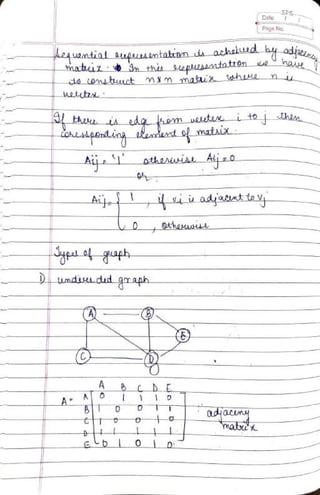 Date
Page No.
Sequential representation is acheived by adjacency
matrix. In this representation we have
to construct n x n matrix where n is
vertex.
If there is edge from vertex i to j then
corresponding element of matrix.
Aij = '1' otherwise Aij = 0
or
Aij = { 1 , if vi is adjacent to vj
0 , otherwise
Types of graph
1) undirected graph
A B
E
C D
A B C D E
A = A 0 1 1 1 0
B 1 0 0 1 1
C 1 0 0 1 0
D 1 1 1 1 1
E 0 1 0 1 0
adjaceny
matrix